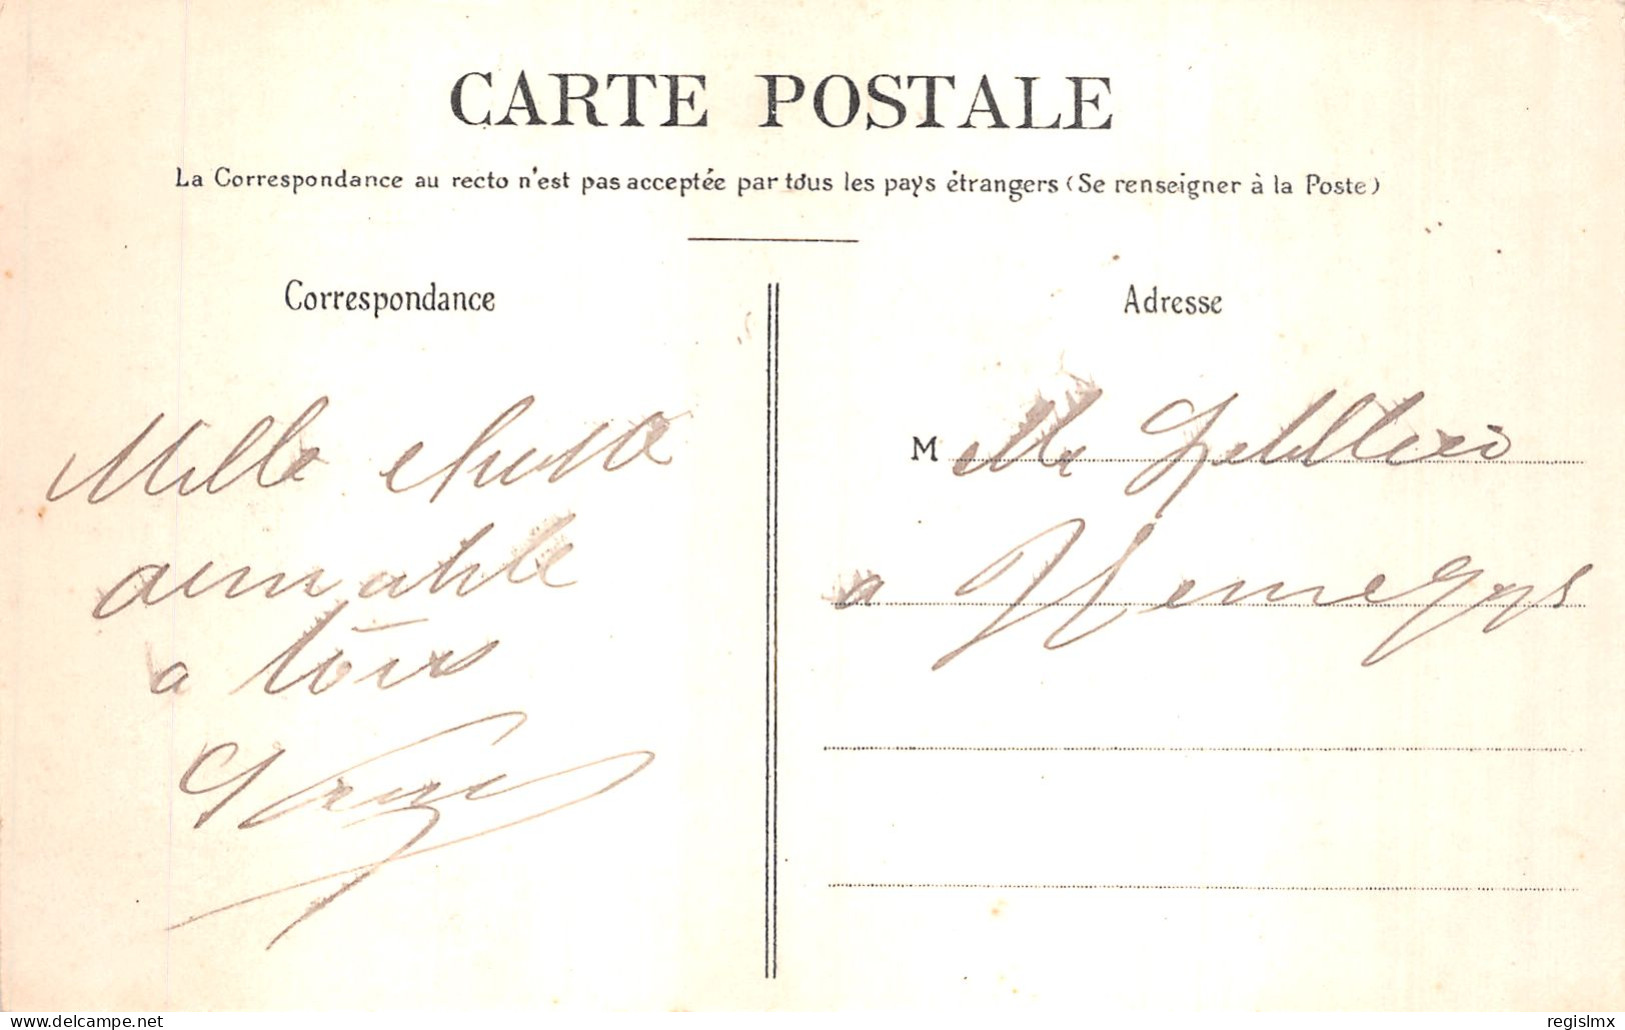 CARTE POSTALE
La Correspondance au recto n'est pas acceptée par tous les pays étrangers (Se renseigner à la Poste)
Correspondance
Mille chose
aimable
a tous
Adresse
M elle
a
delcampe.net
regislmx